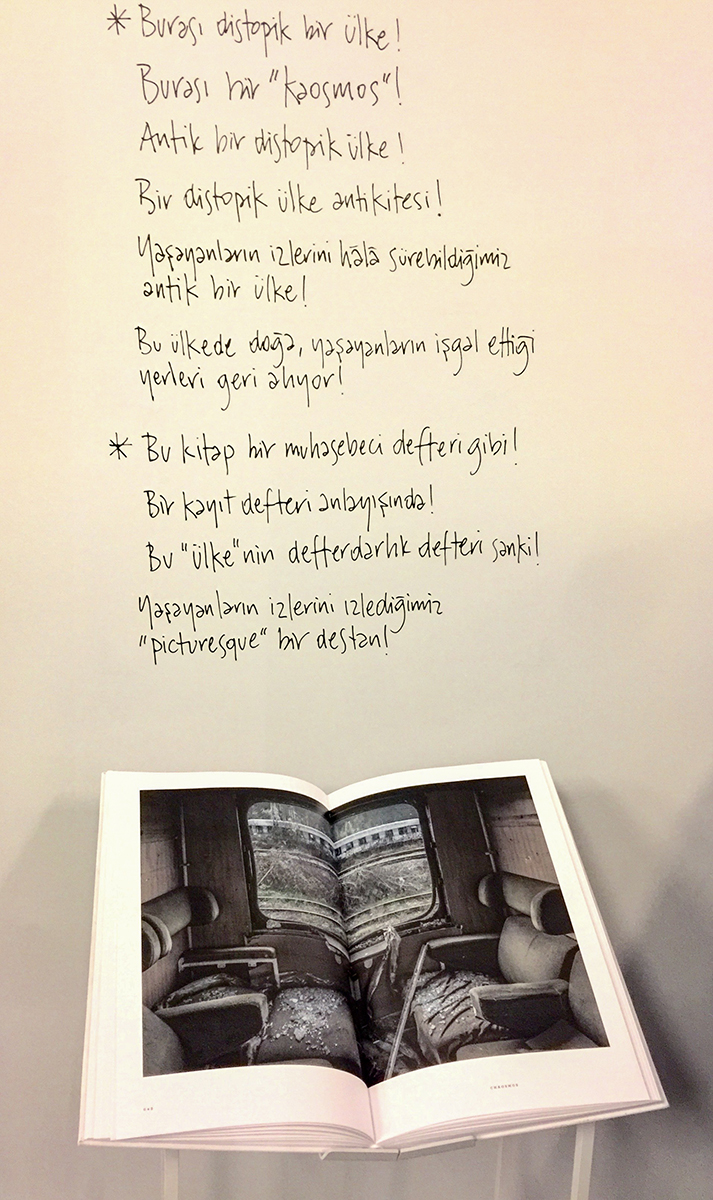 * Burası distopik bir ülke!
Burası bir "kaosmos"!
Antik bir distopik ülke!
Bir distopik ülke antikitesi!
Yaşayanların izlerini hâlâ sürebildiğimiz
antik bir ülke!
Bu ülkede doğa, yaşayanların işgal ettiği
yerleri geri alıyor!
* Bu kitap bir muhasebeci defteri gibi!
Bir kayıt defteri anlayışında!
Bu "ülke"nin defterdarlık defteri sanki!
Yaşayanların izlerini izlediğimiz
"picturesque" bir destan!